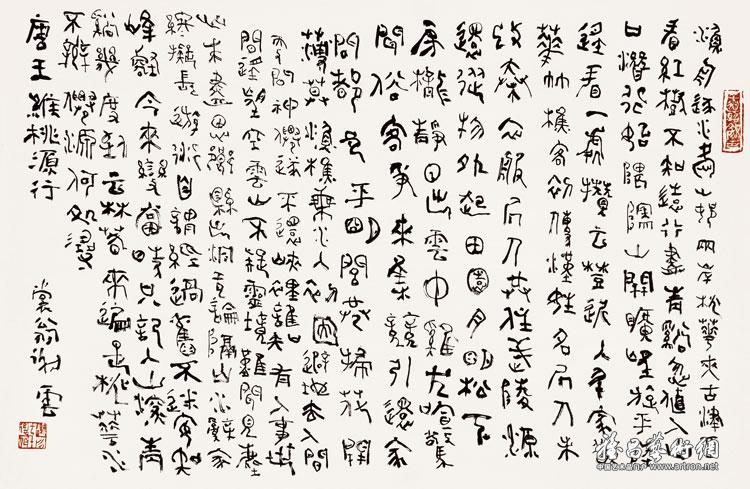 漁舟逐水愛山邨兩岸桃華夾古津
看紅樹不知遠行盡青谿忽值人山
口潛行始隈隩山開曠望旋平陸
遙看一處攢雲樹近入千家散
華竹樵客初傳漢姓名居人未
改秦衣服居人共住武陵源
還從物外起田園月明松下
房櫳靜日出雲中雞犬喧驚
聞俗客爭來集競引還家
問都邑平明閭巷掃花開
薄莫漁樵乘水入初因避地去人間
更聞神仙遂不還峽裏誰知有人事世
間遙望空雲山不疑靈境難聞見塵
心未盡思鄉縣出洞無論隔山水辭家
終擬長遊衍自謂經過舊不迷安知
峰壑今來變當時只記入山深青
谿幾度到雲林春來遍是桃華水
不辨仙源何処尋
唐王維桃源行
裳翁謝雲
雅昌藝術網
中国艺术品门户 http://www.artron.net